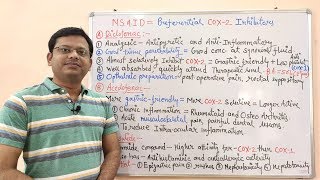 NSAID = Preferential COX-2 Inhibitors
① Diclofenac :-
① Analgesic - Antipyretic and Anti-Inflammatory
② Good tissue penetrability = Good conc. at synovial fluid
③ Almost selectively inhibit COX-2 = Gastric friendly + Low
④ Well absorbed & quickly attained Therapeutic level
⑤ Ophthalmic preparation = post operative pain, rectal suppository
② Aceclofenac :-
More gastric-friendly = More COX-2 Selective = Longer Active
① Chronic Inflammation = Rheumatoid and Osteo Arthritis
② Acute musculoskeletal pain, painful dental lesions
③ To reduce Intra-ocular inflammation
compound - Higher affinity for COX-2 than COX-1
has - Antihistaminic and anticholinergic activity
① Epigastric pain ② ③ Nephrotoxicity ④ Hepatotoxicity